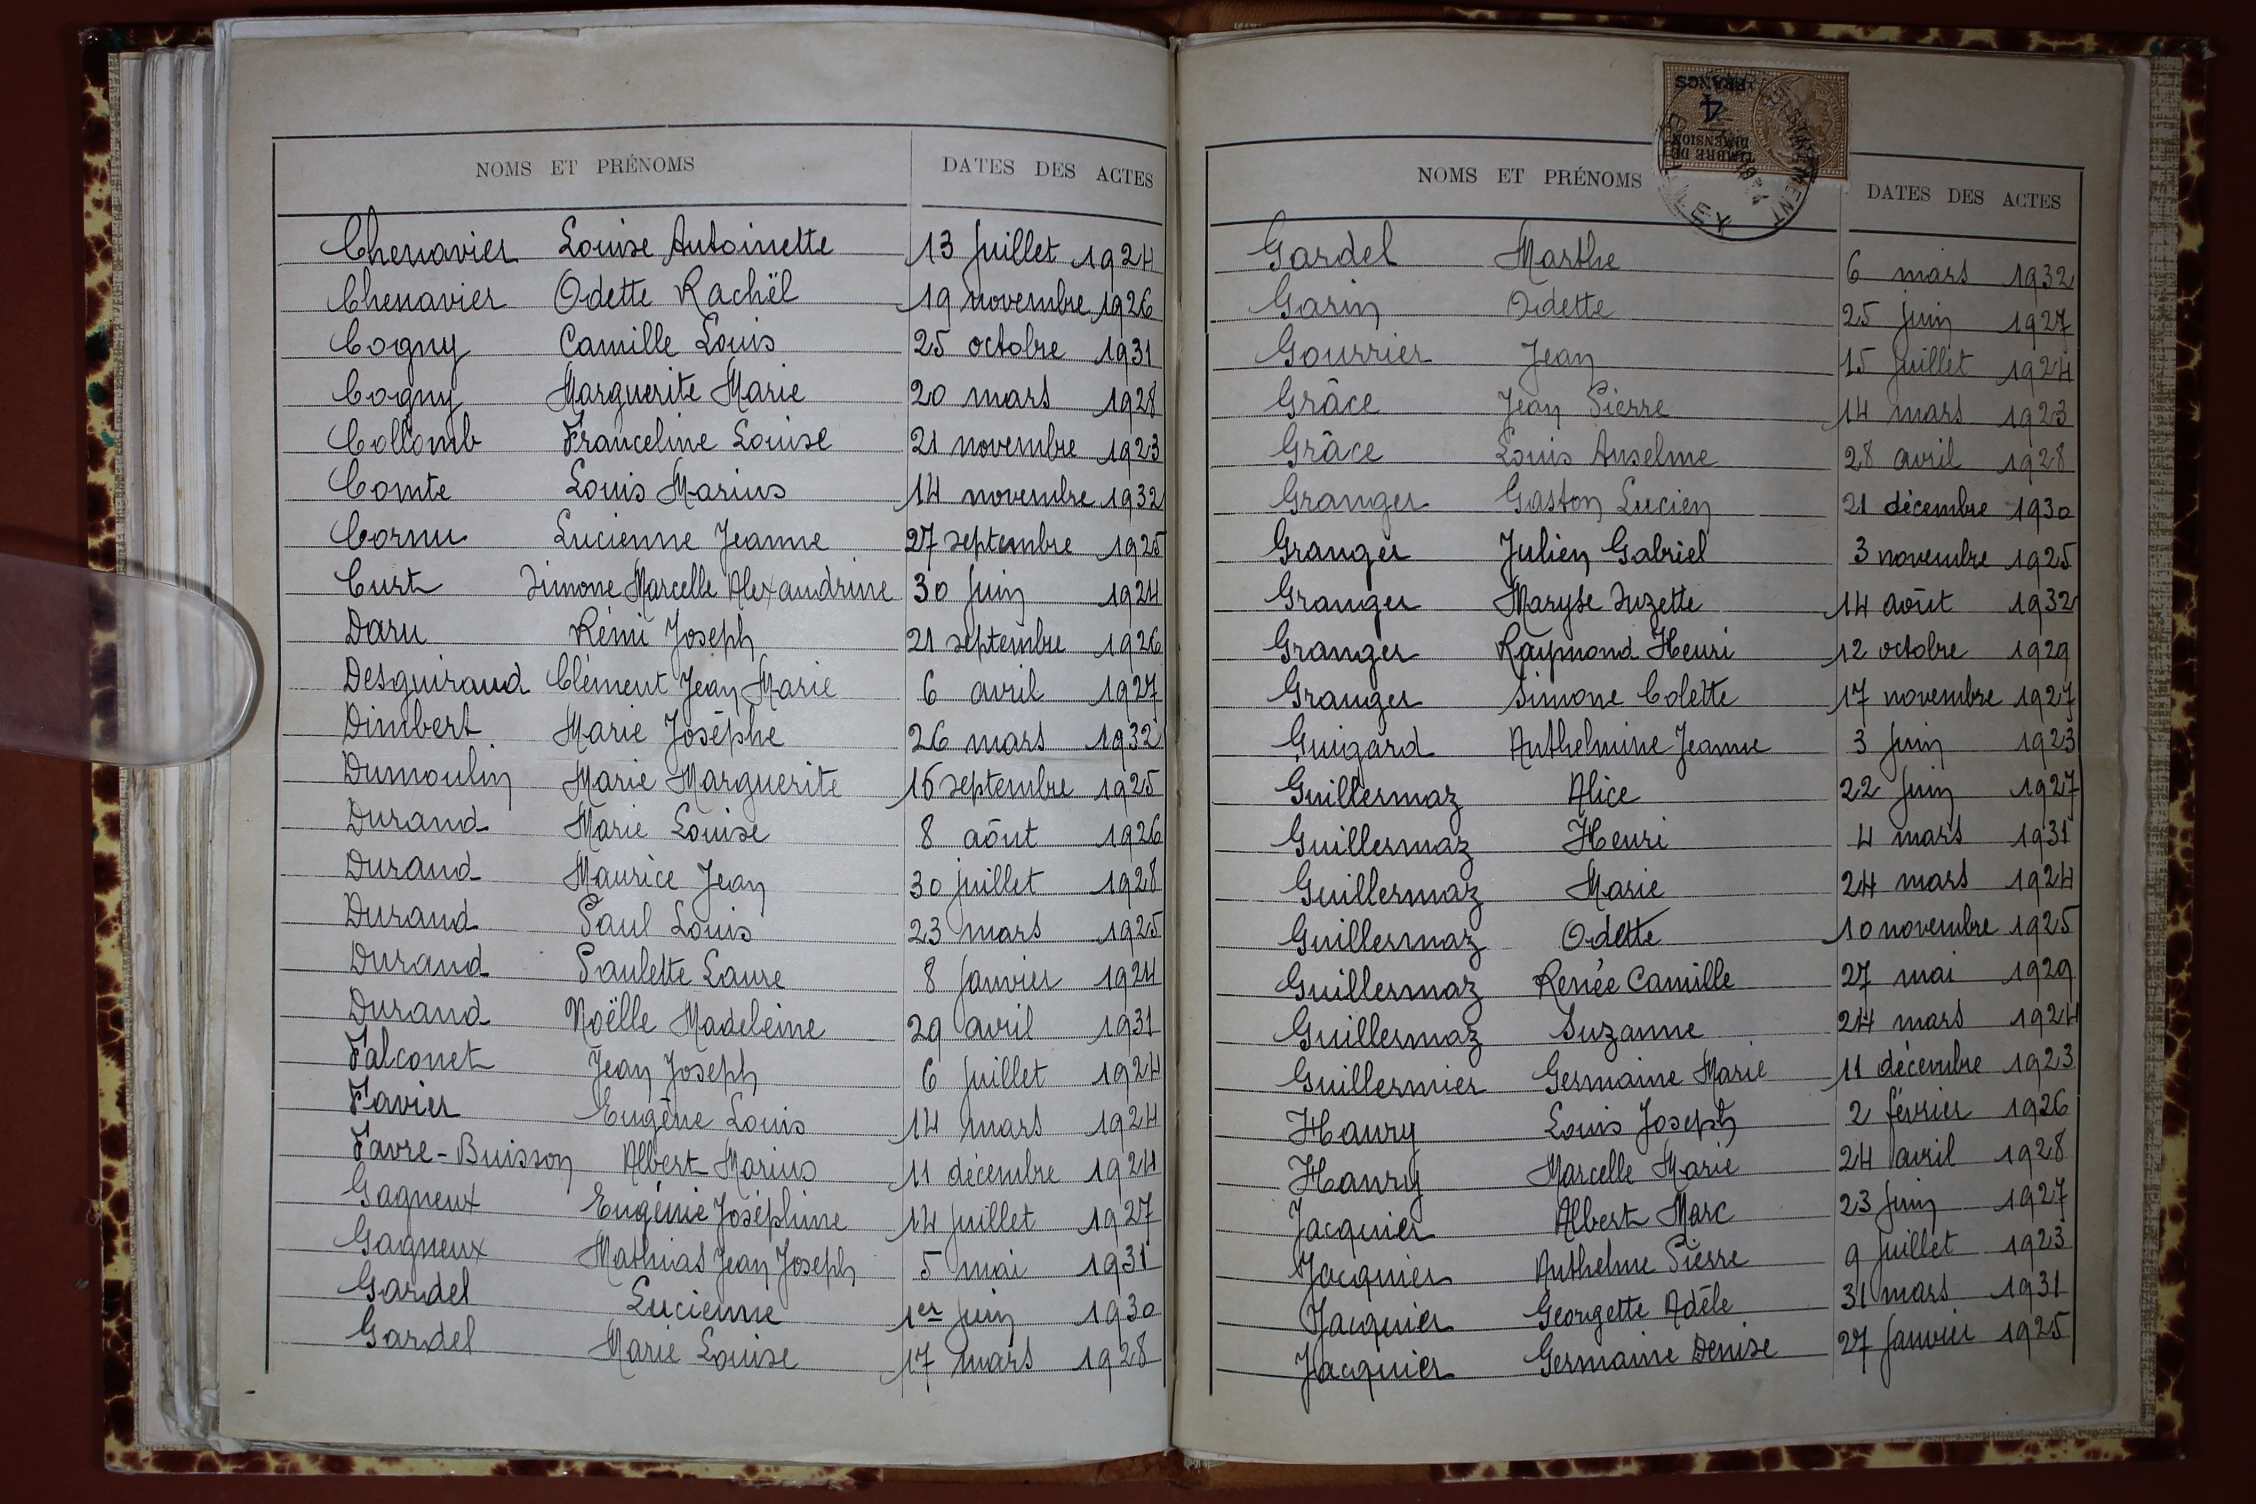 NOMS ET PRÉNOMS DATES DES ACTES
Chenavier Louise Antoinette 13 Juillet 1924
Chenavier Odette Rachël 19 novembre 1926
Cogny Camille Louis 25 octobre 1931
Cogny Marguerite Marie 20 mars 1928
Collomb Franceline Louise 21 novembre 1923
Comte Louis Marius 14 novembre 1932
Cornu Lucienne Jeanne 27 septembre 1925
Curt Simone Marcelle Alexandrine 30 Juin 1924
Daru Rémi Joseph 21 septembre 1926
Desguiraud Clément Jean Marie 6 avril 1927
Dimbert Marie Josèphe 26 mars 1932
Dumoulin Marie Marguerite 16 septembre 1925
Durand Marie Louise 8 août 1926
Durand Maurice Jean 30 juillet 1928
Durand Paul Louis 23 mars 1925
Durand Paulette Laure 8 Janvier 1924
Durand Noëlle Madeleine 29 avril 1931
Falconet Jean Joseph 6 Juillet 1924
Favier Eugène Louis 14 mars 1924
Favre-Buisson Albert Marius 11 décembre 1924
Gagneux Eugénie Joséphine 14 juillet 1927
Gagneux Mathias Jean Joseph 5 mai 1931
Gardel Lucienne 1er Juin 1930
Gardel Marie Louise 17 mars 1928
4 FRANCS
TIMBRE DE DIMENSION
NOMS ET PRÉNOMS DATES DES ACTES
Gardel Marthe 6 mars 1932
Garin Odette 25 juin 1927
Gourrier Jean 15 Juillet 1924
Grâce Jean Pierre 14 mars 1923
Grâce Louis Anselme 28 avril 1928
Granger Gaston Lucien 21 décembre 1930
Granger Julien Gabriel 3 novembre 1925
Granger Maryse Suzette 14 août 1932
Granger Raymond Henri 12 octobre 1929
Granger Simone Colette 17 novembre 1927
Guigard Anthelmine Jeanne 3 Juin 1923
Guillermaz Alice 22 Juin 1927
Guillermaz Henri 4 mars 1931
Guillermaz Marie 24 mars 1924
Guillermaz Odette 10 novembre 1925
Guillermaz Renée Camille 27 mai 1929
Guillermaz Suzanne 24 mars 1924
Guillermier Germaine Marie 11 décembre 1923
Haury Louis Joseph 2 février 1926
Haury Marcelle Marie 24 avril 1928
Jacquier Albert Marc 23 Juin 1927
Jacquier Anthelme Pierre 9 Juillet 1923
Jacquier Georgette Adèle 31 mars 1931
Jacquier Germaine Denise 27 Janvier 1925